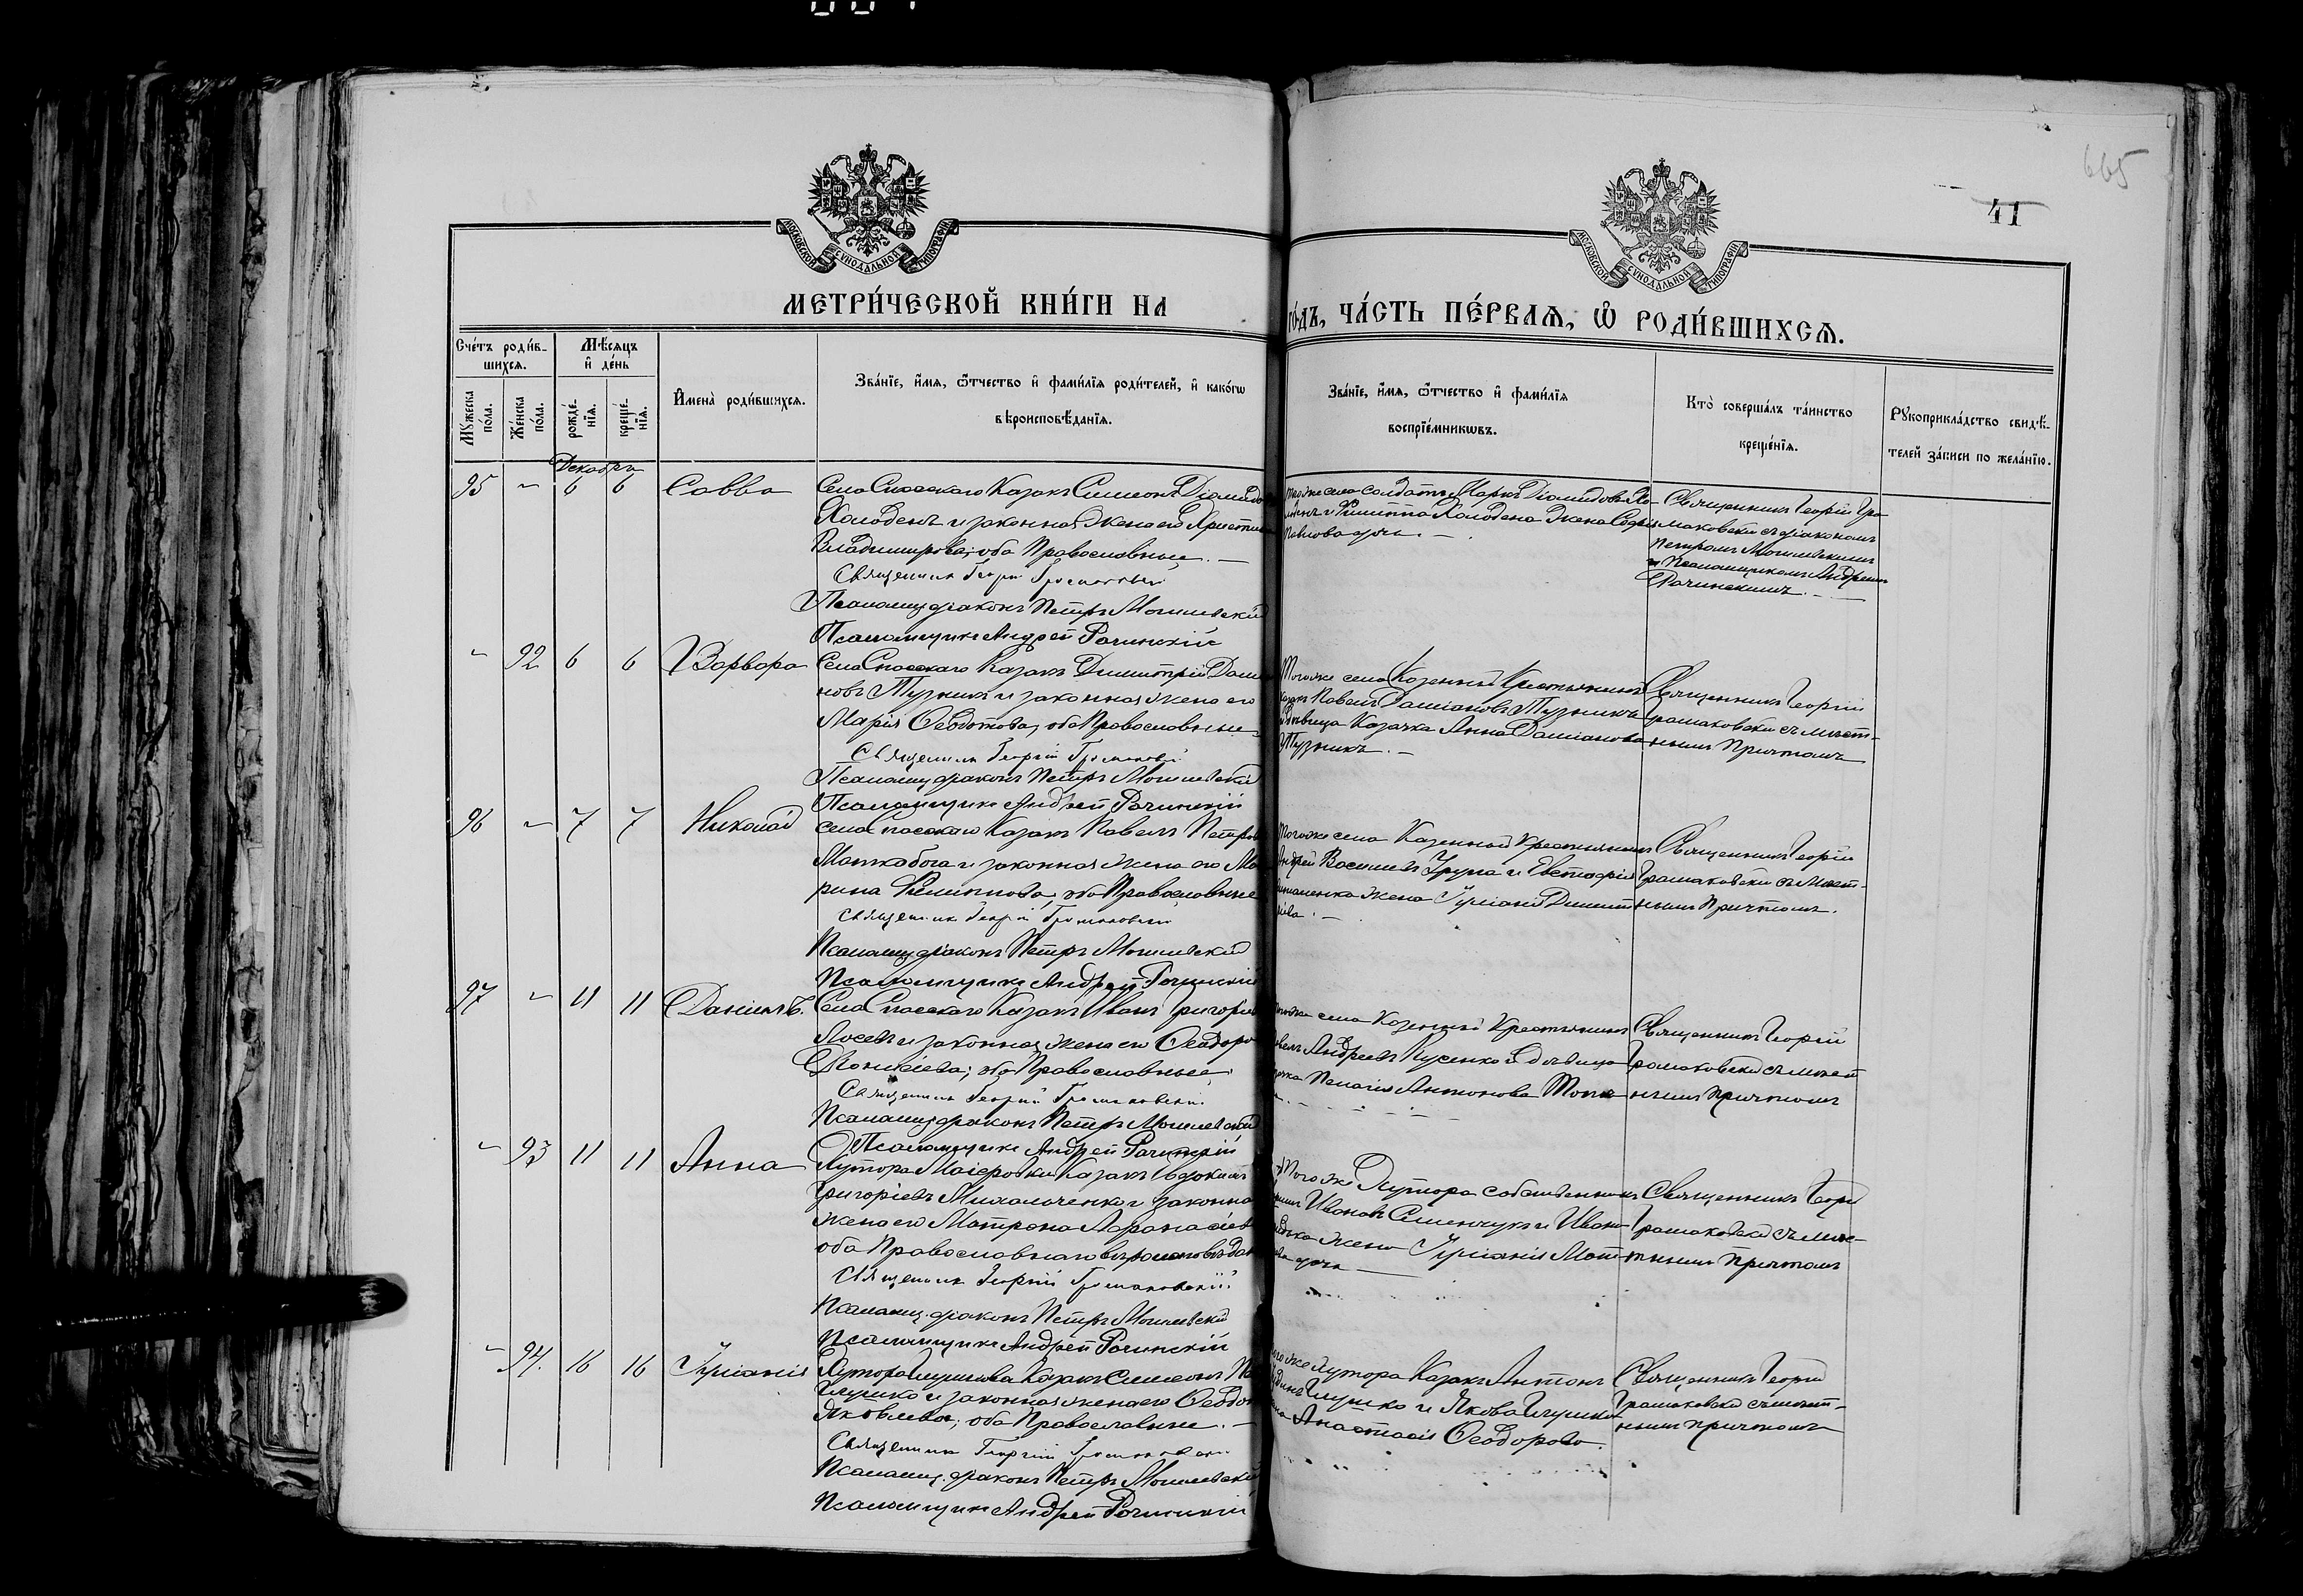 665
41
МОСКОВСКОЙ СѴНОДАЛЬНОЙ ТИПОГРАФІИ
МОСКОВСКОЙ СѴНОДАЛЬНОЙ ТИПОГРАФІИ
МЕТРИ́ЧЕСКОЙ КНИ́ГИ НА
ГО́ДЪ, ЧА́СТЬ ПЕ́РВАЯ, Ѡ РОДИ́ВШИХСЯ.
Сче́тъ роди́в-
шихся.
Мѣ́сяцъ
и де́нь
Мꙋжеска по́ла.
Же́нска по́ла.
рожде́-нїя.
креще́-нїя.
Имена̀ роди́вшихся.
Зва́нїе, и́мя, ѻ҆́тчество и фами́лїя роди́телей, и како́гѡ
вѣроисповѣ́данїя.
Зва́нїе, и́мя, ѻ҆́тчество и фами́лїя
воспрїе́мникѡвъ.
Кто̀ соверша́лъ та́инство
креще́нїя.
Рꙋкоприкла́дство свидѣ́-
телей за́писи по жела́нїю.
Декабрь
95 - 6 6 Савва
Села Спасскаго Казакъ Симеонъ Діомидо
Холоденъ и законная жена его Христи
Владимирова; оба Православные. —
Священникъ Георгій Громаковскій
Псаломщ. діаконъ Петръ Могилевскій
Псаломщикъ Андрей Рачинскій
того же села солдатъ Маркъ Діомидовъ Хо-
и Филиппа Холодена жена Софія
Павлова дочь. —
Священникъ Георгій Гро-
маковскій съ діакономъ
Петромъ Могилевскимъ
и Псаломщикомъ Андреемъ
Рачинскимъ. —
- 92 6 6 Варвара
Села Спасскаго Казакъ Димитрій Дамі
новъ Тузникъ и законная жена его
Марія Ѳеодотова, оба Православные
Священникъ Георгій Громаковскій
Псаломщ. діаконъ Петръ Могилевскій
Псаломщикъ Андрей Рачинскій
Того же села Казенный Крестьянинъ
Павелъ Даміановъ Тузникъ
вица Казачка Анна Даміанова
Тузникъ. —
Священникъ Георгій
Громаковскій съ мѣст-
нымъ Причтомъ
96 - 7 7 Николай
села Спасскаго Казакъ Павелъ Петров
и законная жена его Ма
рина Филиппова, оба Православные
Священникъ Георгій Громаковскій
Псаломщ. діаконъ Петръ Могилевскій
Псаломщикъ Андрей Рачинскій
Того же села Казенный Крестьянинъ
Андрей Василіевъ и Евстафія
жена Іуліанія Димит
ріева. —
Священникъ Георгій
Громаковскій съ мѣст-
нымъ Причтомъ.
97 - 11 11 Даніилъ.
Села Спасскаго Казакъ Иванъ Григорі
Лосевъ и законная жена его Ѳеодоро
оба Православные.
Священникъ Георгій Громаковскій
Псаломщ. діаконъ Петръ Могилевскій
Псаломщикъ Андрей Рачинскій
села Казенный Крестьянинъ
Андреевъ и вдовица
Пелагія Антонова
Священникъ Георгій
Громаковскій съ мѣст
нымъ Причтомъ
- 93 11 11 Анна
Хутора Казакъ Евдокимъ
Григоріевъ Михальченко и законна
жена его Матрона Аѳанасіев
оба Православнаго вѣроисповѣдан
Священникъ Георгій Громаковскій
Псаломщ. діаконъ Петръ Могилевскій
Псаломщикъ Андрей Рачинскій
Того же Хутора собственникъ
Ивановъ Семенчукъ и Ивана
жена Іуліанія Мат
дочь —
Священникъ Георгій
Громаковскій съ мѣс-
тнымъ Причтомъ
- 94. 16 16 Іуліанія
Хутора Глушкова Казакъ Симеонъ
Глушко и законная жена его Ѳеодо
Яковлева; оба Православные. —
Священникъ Георгій Громаковскій
Псаломщ. діаконъ Петръ Могилевскій
Псаломщикъ Андрей Рачинскій
хутора Казакъ Антонъ
Глушко и Якова Глушка
Анастасія Ѳеодорова.
Священникъ Георгій
Громаковскій съ мѣст-
нымъ Причтомъ